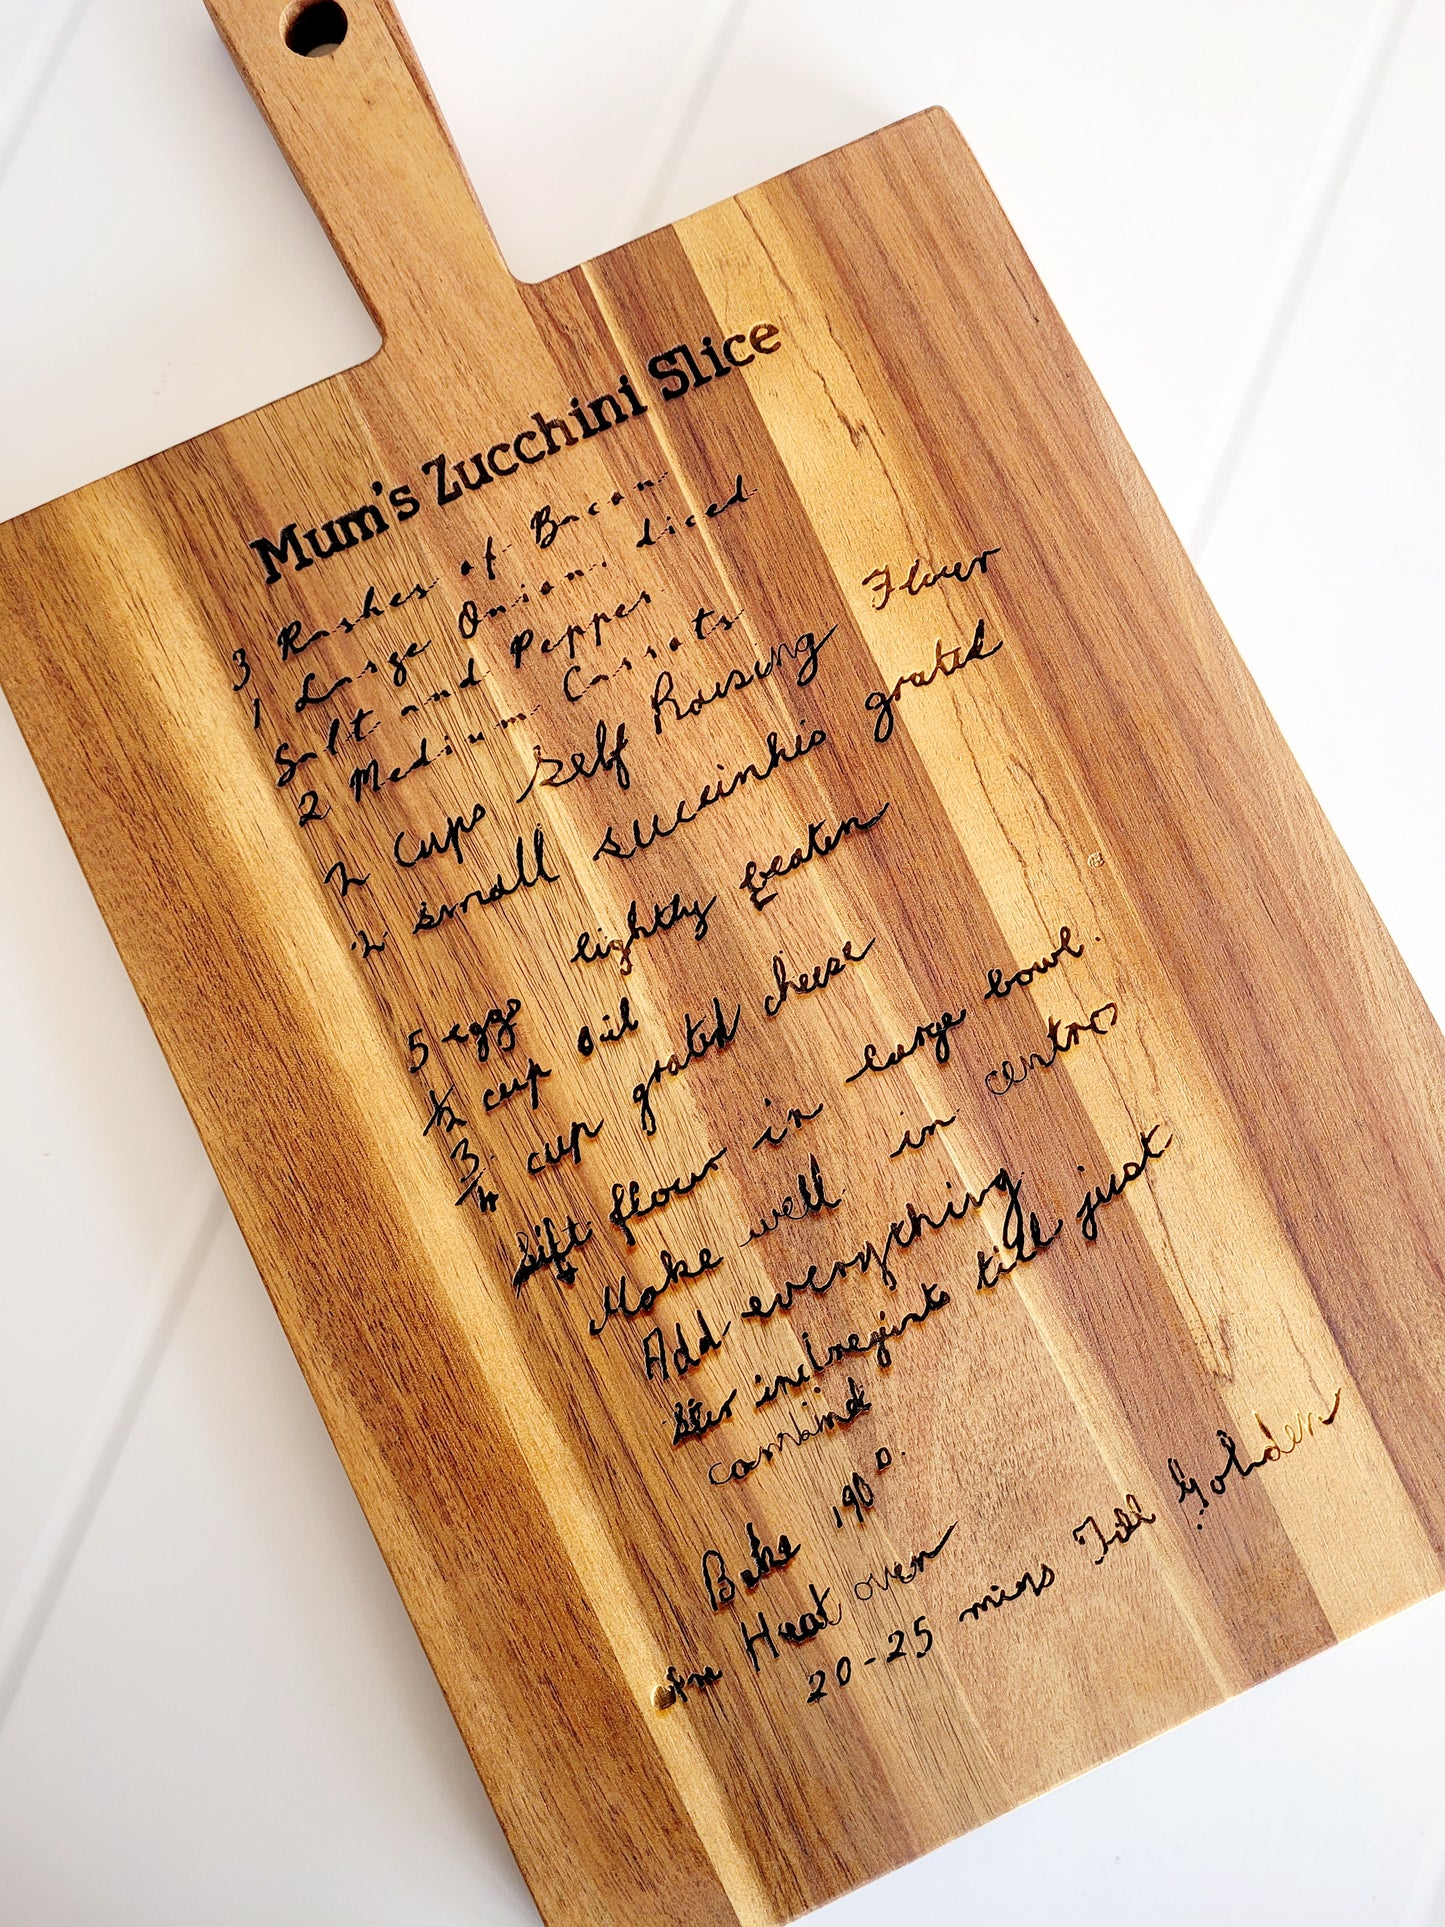 Mum's Zucchini Slice
3 Rashes of Bacon
1 Large Onion diced
Salt and Pepper
2 Medium Carrots
2 Cups Self Raising Flour
2 small succinhis grated
5 eggs lightly beaten
1/2 cup oil
3/4 cup grated cheese
Sift flour in large bowl.
Make well in centre
Add everything
till just
combined
Bake 190°.
Heat oven
20-25 mins Till Golden